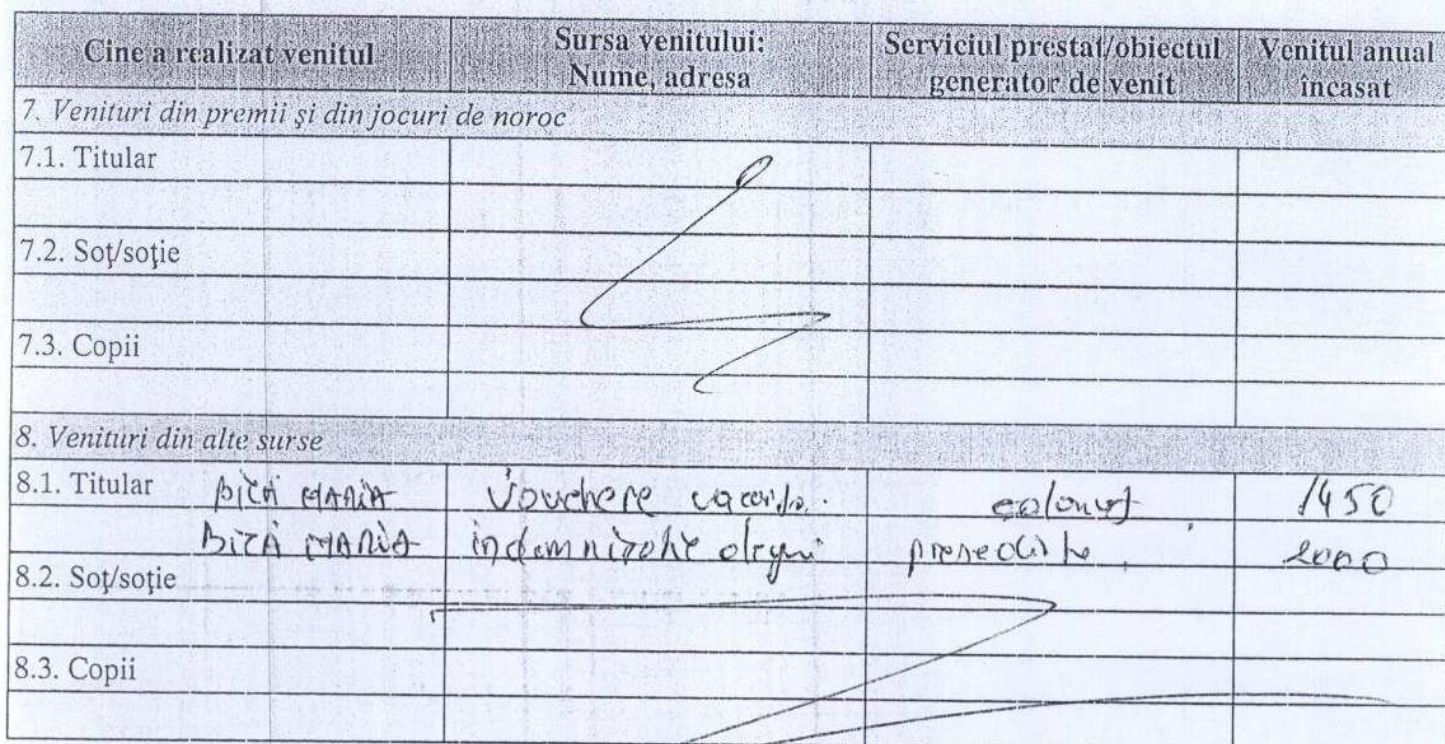 Cine a realizat venitul Sursa venitului: Nume, adresa Serviciul prestat/obiectul generator de venit Venitul anual încasat
7. Venituri din premii şi din jocuri de noroc
7.1. Titular
7.2. Soţ/soţie
7.3. Copii
8. Venituri din alte surse
8.1. Titular BIZĂ MARIA Vouchere 1450
BIZĂ MARIA 2000
8.2. Soţ/soţie
8.3. Copii